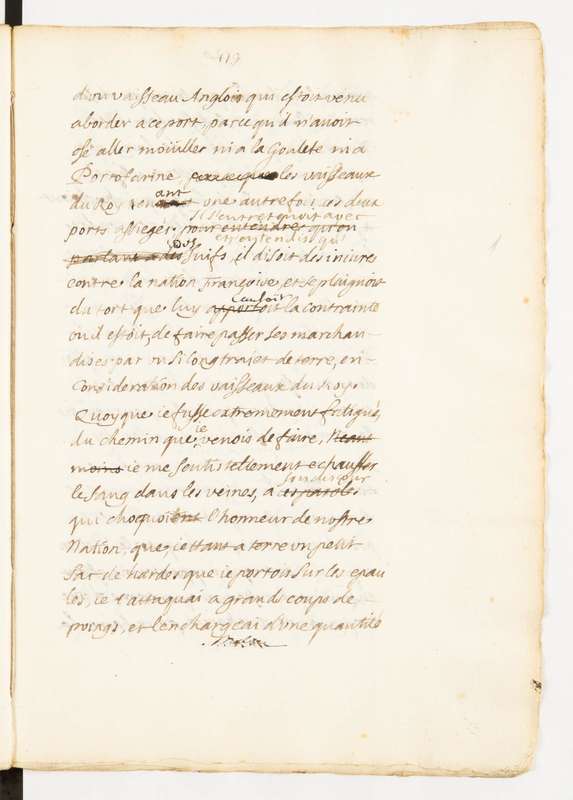 119
d'un vaisseau Anglois qui estoit venu
aborder a ce port, parce qu'il n'avoit
osé aller moüiller ni a la Goulete ni a
Portofarine, les vaisseaux
du Roy tenant une autre fois ces deux
il s'entretenoit avec
ports assiegés, pour entendre qu'on
et i'entendis qu'
parlant a des des Juifs, il disoit des iniures
contre la nation Françoise, et se plaignoit
causoit
du tort que luy apportoit la contrainte
ou il estoit, de faire passer ses marchan-
dises par un si long traiet de terre, en
consideration des vaisseaux du Roy.
Quoy que ie fusse extremement fatigué
du chemin que ie venois de faire, neant
moins ie me sentis tellement echauffer
le sang dans les veines, a ces paroles
qui choquoient l'honneur de nostre
Nation, que iettant a terre un petit
sac de hardes que ie portois sur les epau
les, ie l'attaquai a grands coups de
poings, et le chargeai d'une quantité